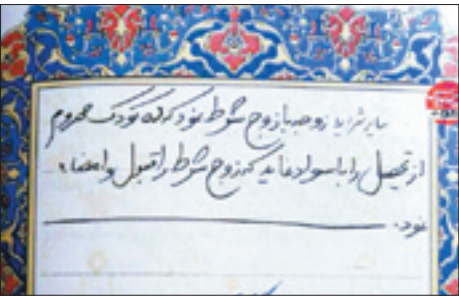 سایر شراید زوجه با زوج شرط نمود که کودک محروم
از تحصیل را باسواد نماید که زوج شرط را قبول و امضاء
نمود.